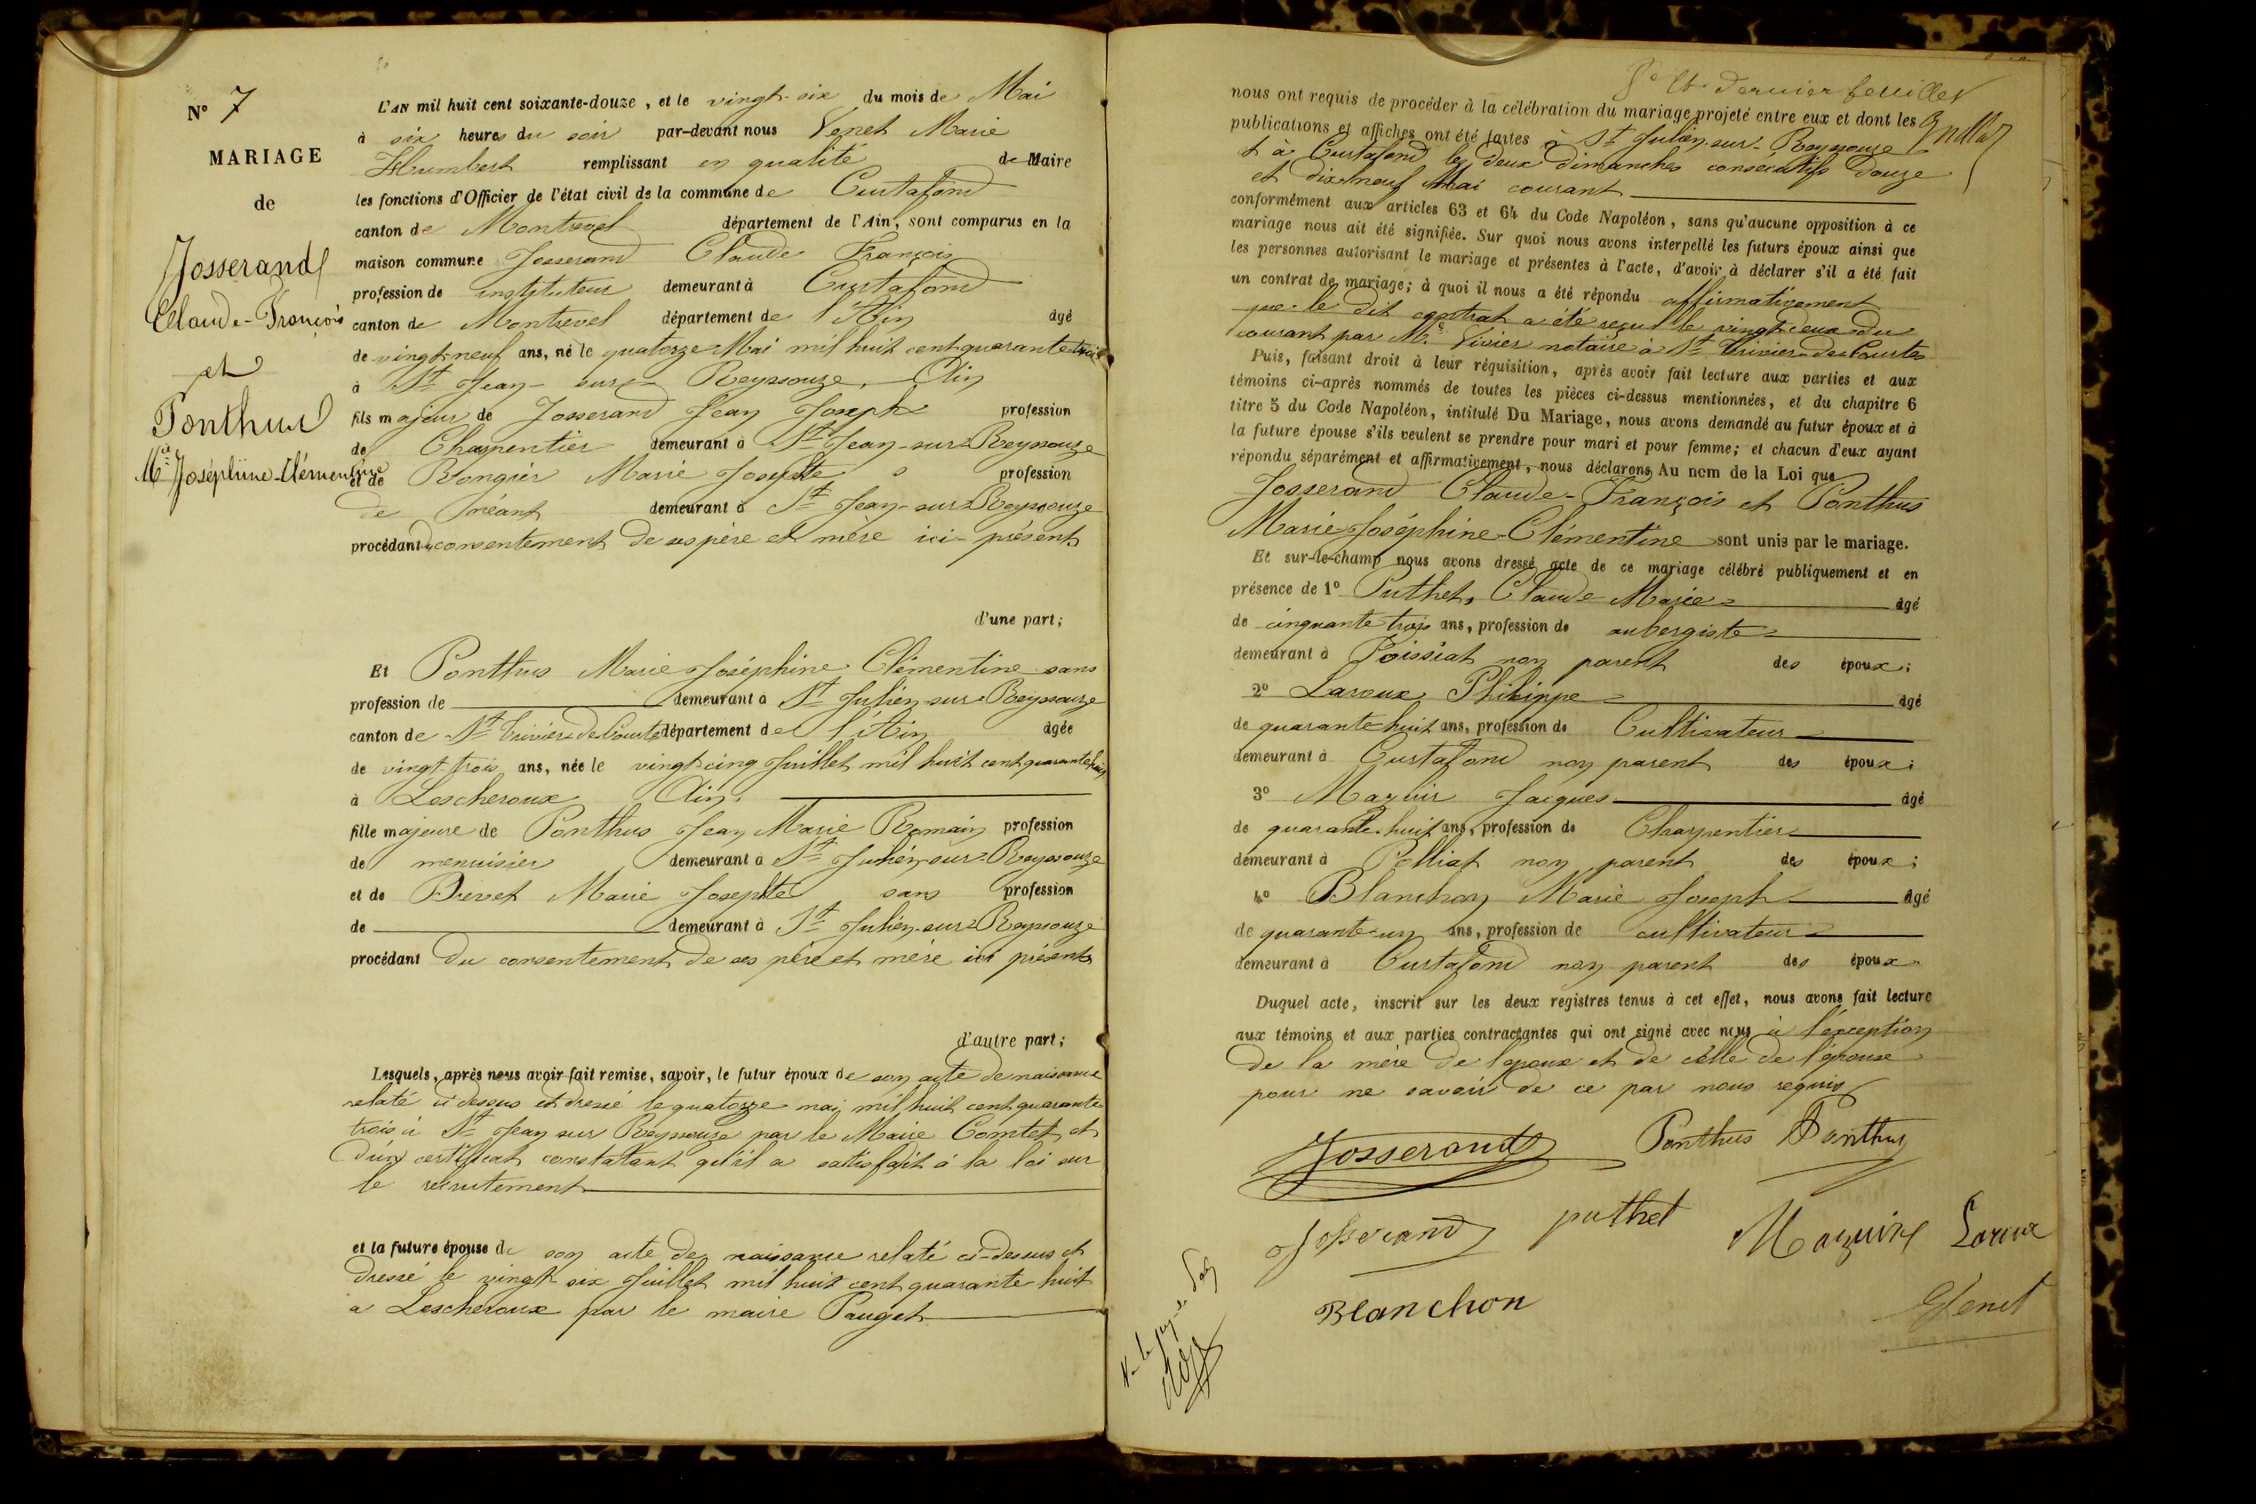 N° 7
MARIAGE
de
Josserand
Claude-François
et
Ponthus
Mie Joséphine-Clémentine
L'AN mil huit cent soixante-douze, et le vingt-six du mois de Mai
à six heures du soir par-devant nous Venet Marie
Humbert remplissant en qualité de Maire
les fonctions d'Officier de l'état civil de la commune de Curtafond
canton de Montrevel département de l'Ain, sont comparus en la
maison commune Josserand Claude François
profession de instituteur demeurant à Curtafond
canton de Montrevel département de l'Ain âgé
de vingt-neuf ans, né le quatorze Mai mil huit cent quarante trois
à St Jean-sur-Reyssouze, Ain
fils majeur de Josserand Jean Joseph profession
de Charpentier demeurant à St Jean-sur-Reyssouze
et de Rongier Marie Josephte profession
de néant demeurant à St Jean-sur-Reyssouze
procédant du consentement de ses père et mère ici présent
d'une part;
Et Ponthus Marie Joséphine Clémentine sans
profession de demeurant à St Julien-sur-Reyssouze
canton de St Trivier de Courtes département de l'Ain âgée
de vingt-trois ans, née le vingt cinq Juillet mil huit cent quarante huit
à Lescheroux Ain.
fille majeure de Ponthus Jean Marie Romain profession
de menuisier demeurant à St Julien-sur-Reyssouze
et de Brevet Marie Josephte sans profession
de demeurant à St Julien-sur-Reyssouze
procédant du consentement de ses père et mère ici présents
d'autre part;
Lesquels, après nous avoir fait remise, savoir, le futur époux de son acte de naissance
relaté ci dessus et dressé le quatorze mai mil huit cent quarante
trois à St Jean sur Reyssouze par le Maire Comtet et
d'un certificat constatant qu'il a satisfait à la loi sur
le recrutement
et la future épouse de son acte de naissance relaté ci-dessus et
dressé le vingt-six Juillet mil huit cent quarante-huit
a Lescheroux par le maire Pauget
et dernier feuillet
nous ont requis de procéder à la célébration du mariage projeté entre eux et dont les
publications et affiches ont été faites à St Julien-sur-Reyssouze
et à Curtafond les deux dimanches consécutifs douze
et dix-neuf Mai courant
conformément aux articles 63 et 64 du Code Napoléon, sans qu'aucune opposition à ce
mariage nous ait été signifiée. Sur quoi nous avons interpellé les futurs époux ainsi que
les personnes autorisant le mariage et présentes à l'acte, d'avoir à déclarer s'il a été fait
un contrat de mariage; à quoi il nous a été répondu affirmativement
que le dit contrat a été reçu le vingt-deux du
courant par Me Vivier notaire à St Trivier-de-Courtes
Puis, faisant droit à leur réquisition, après avoir fait lecture aux parties et aux
témoins ci-après nommés de toutes les pièces ci-dessus mentionnées, et du chapitre 6
titre 5 du Code Napoléon, intitulé Du Mariage, nous avons demandé au futur époux et à
la future épouse s'ils veulent se prendre pour mari et pour femme; et chacun d'eux ayant
répondu séparément et affirmativement, nous déclarons Au nom de la Loi que
Josserand Claude-François et Ponthus
Marie-Joséphine-Clémentine sont unis par le mariage.
Et sur-le-champ nous avons dressé acte de ce mariage célébré publiquement et en
présence de 1° Puthet, Claude Marie âgé
de cinquante trois ans, profession de aubergiste
demeurant à Foissiat non parent des époux;
2° Laroux Philippe âgé
de quarante-huit ans, profession de Cultivateur
demeurant à Curtafond non parent des époux;
3° Mazuir Jacques âgé
de quarante-huit ans, profession de Charpentier
demeurant à Polliat non parent des époux;
4° Blanchon Marie Joseph âgé
de quarante-un ans, profession de cultivateur
demeurant à Curtafond non parent des époux.
Duquel acte, inscrit sur les deux registres tenus à cet effet, nous avons fait lecture
aux témoins et aux parties contractantes qui ont signé avec nous à l'exception
de la mère de l'époux et de celle de l'épouse
pour ne savoir de ce par nous requis
Josserand Ponthus Ponthus
Josserand puthet Mazuire Laroux
Blanchon Venet